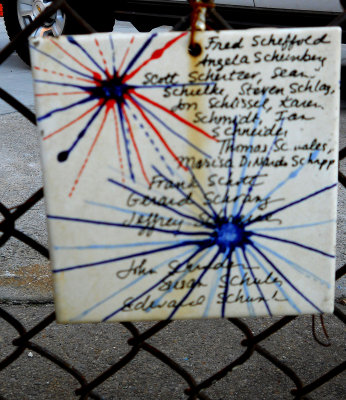 Fred Scheffold
Angela Scheinberg
Scott Schertzer, Sean
Schielke, Steven Schlag,
Jon Schlissel, Karen
Schmidt, Ian
Schneider
Thomas
Marisa DiNardo Schorpp
Frank
Gerard Schrang
Jeffrey
John
Susan Schuler
Edward